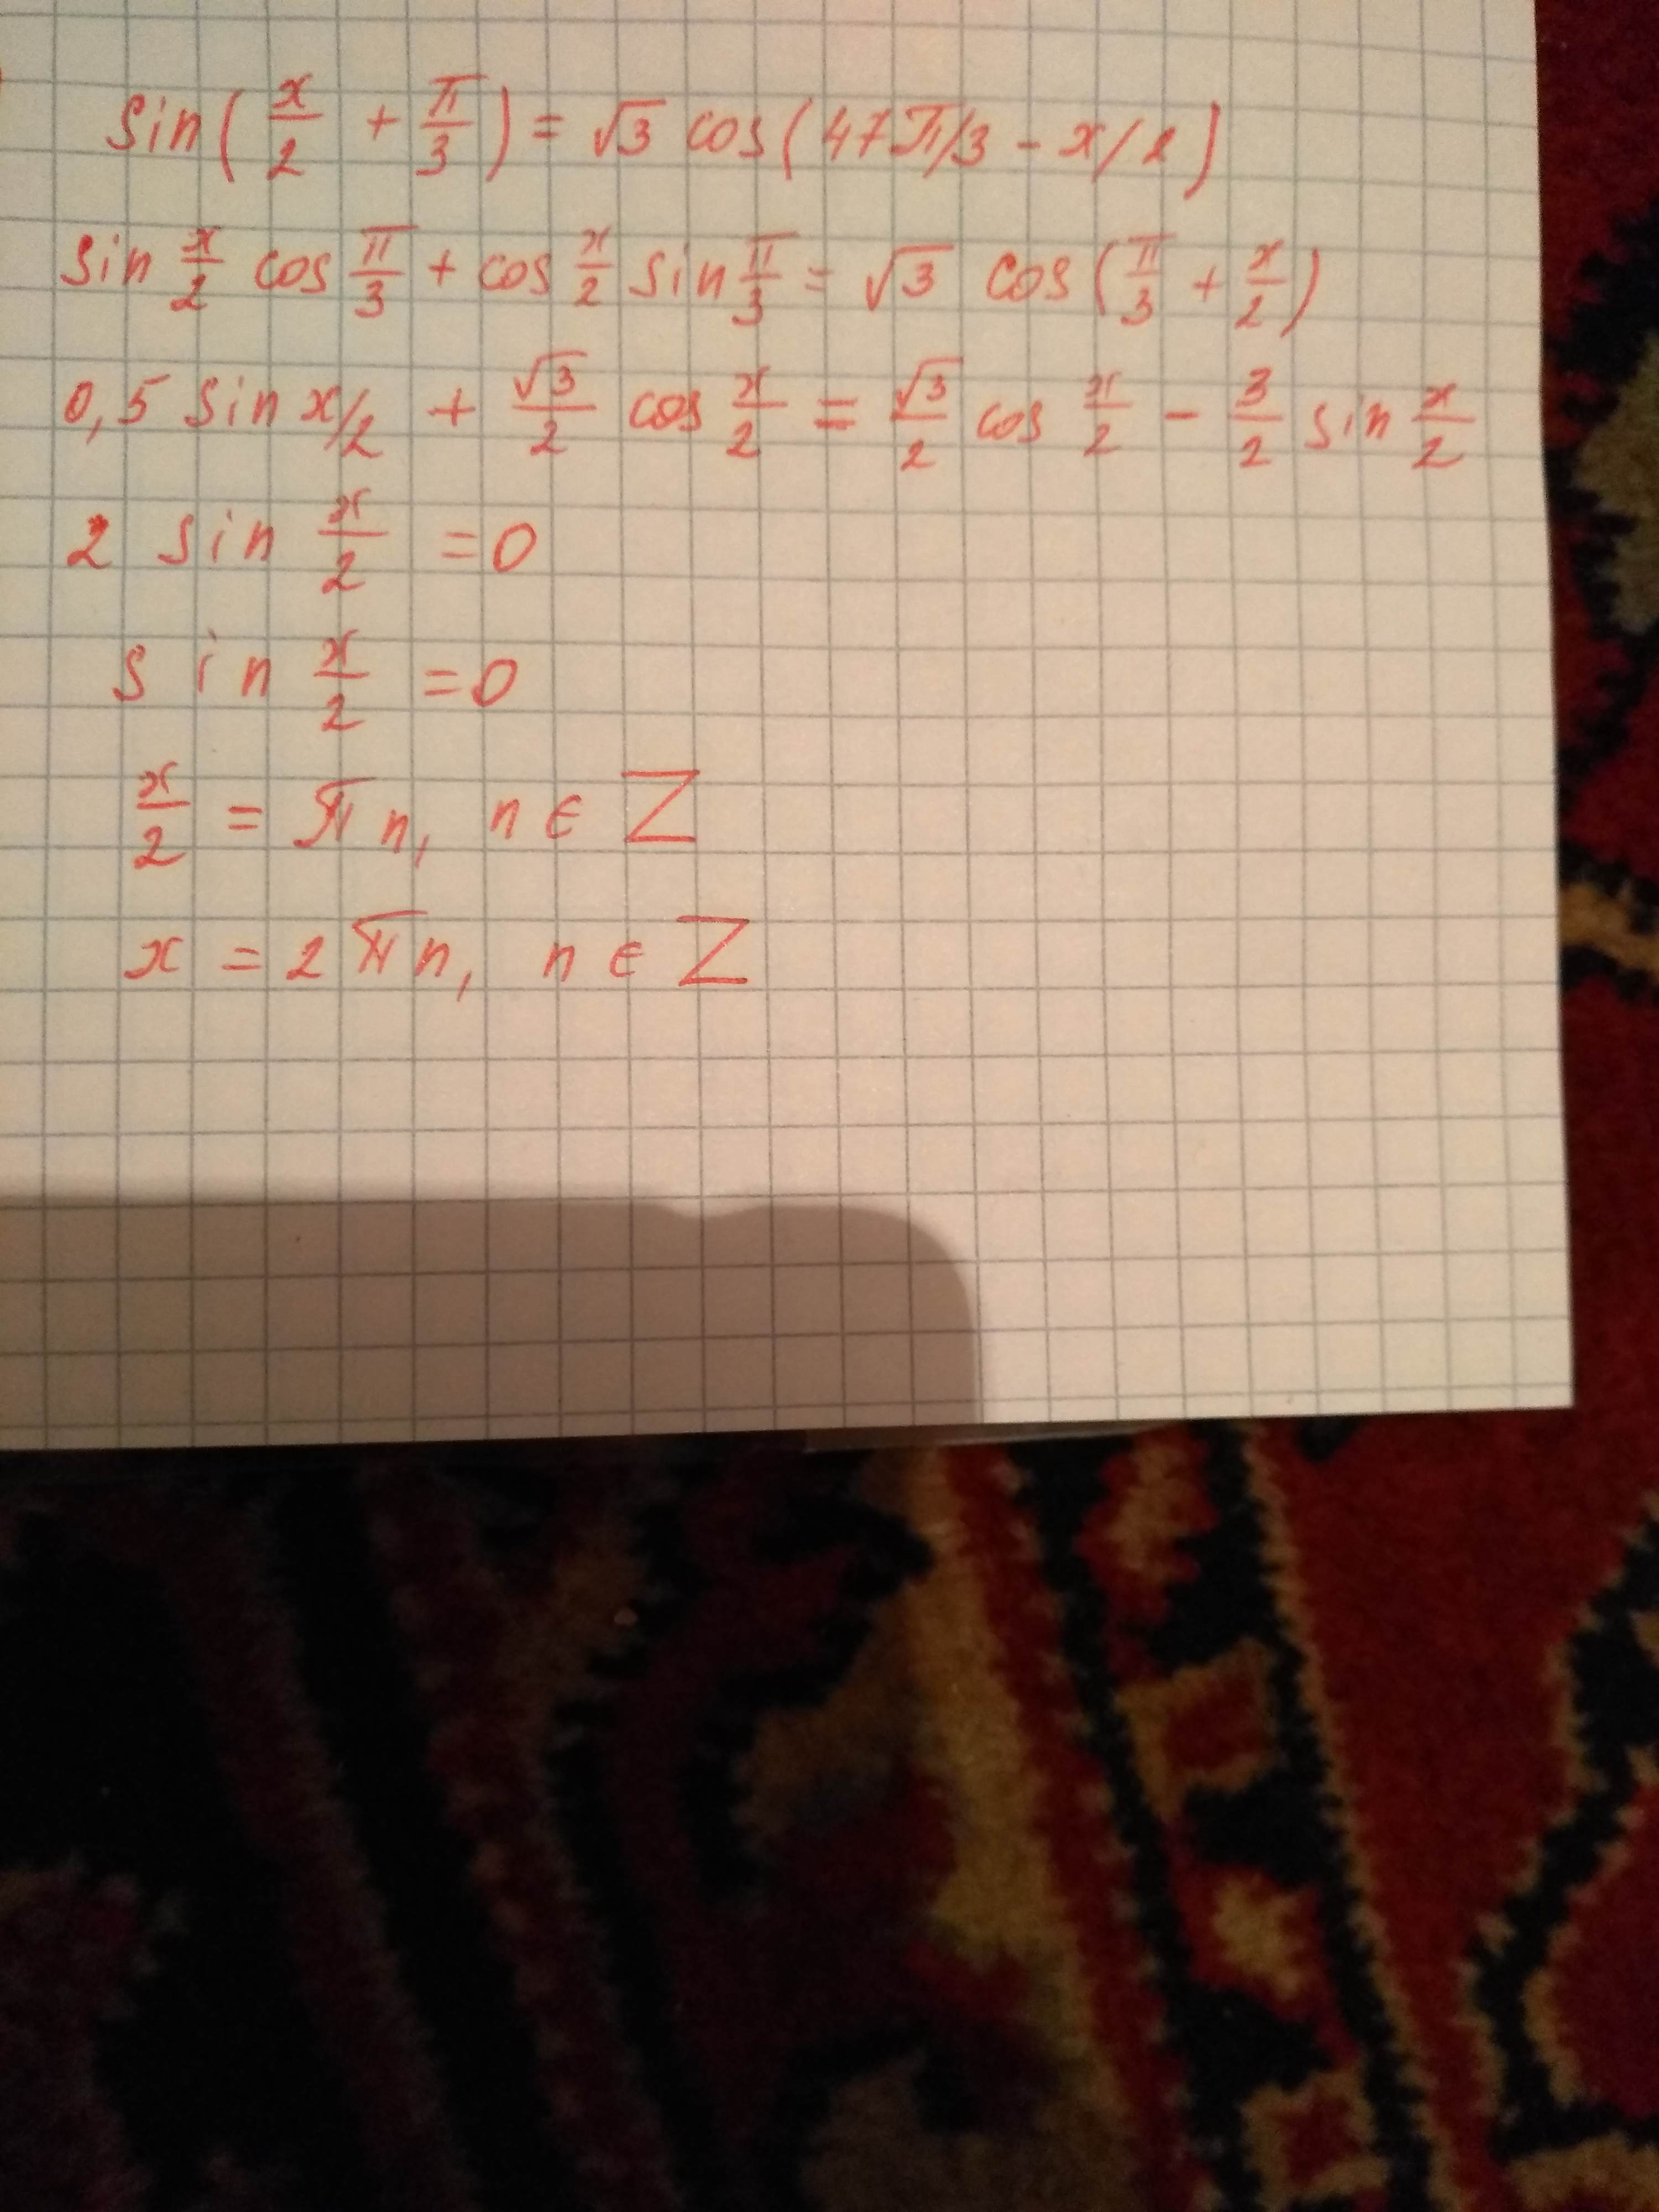 sin(x/2 + π/3) = √3 cos(47π/3 - x/2)
sin x/2 cos π/3 + cos x/2 sin π/3 = √3 cos(π/3 + x/2)
0,5 sin x/2 + √3/2 cos x/2 = √3/2 cos x/2 - 3/2 sin x/2
2 sin x/2 = 0
sin x/2 = 0
x/2 = πn, n ∈ Z
x = 2πn, n ∈ Z